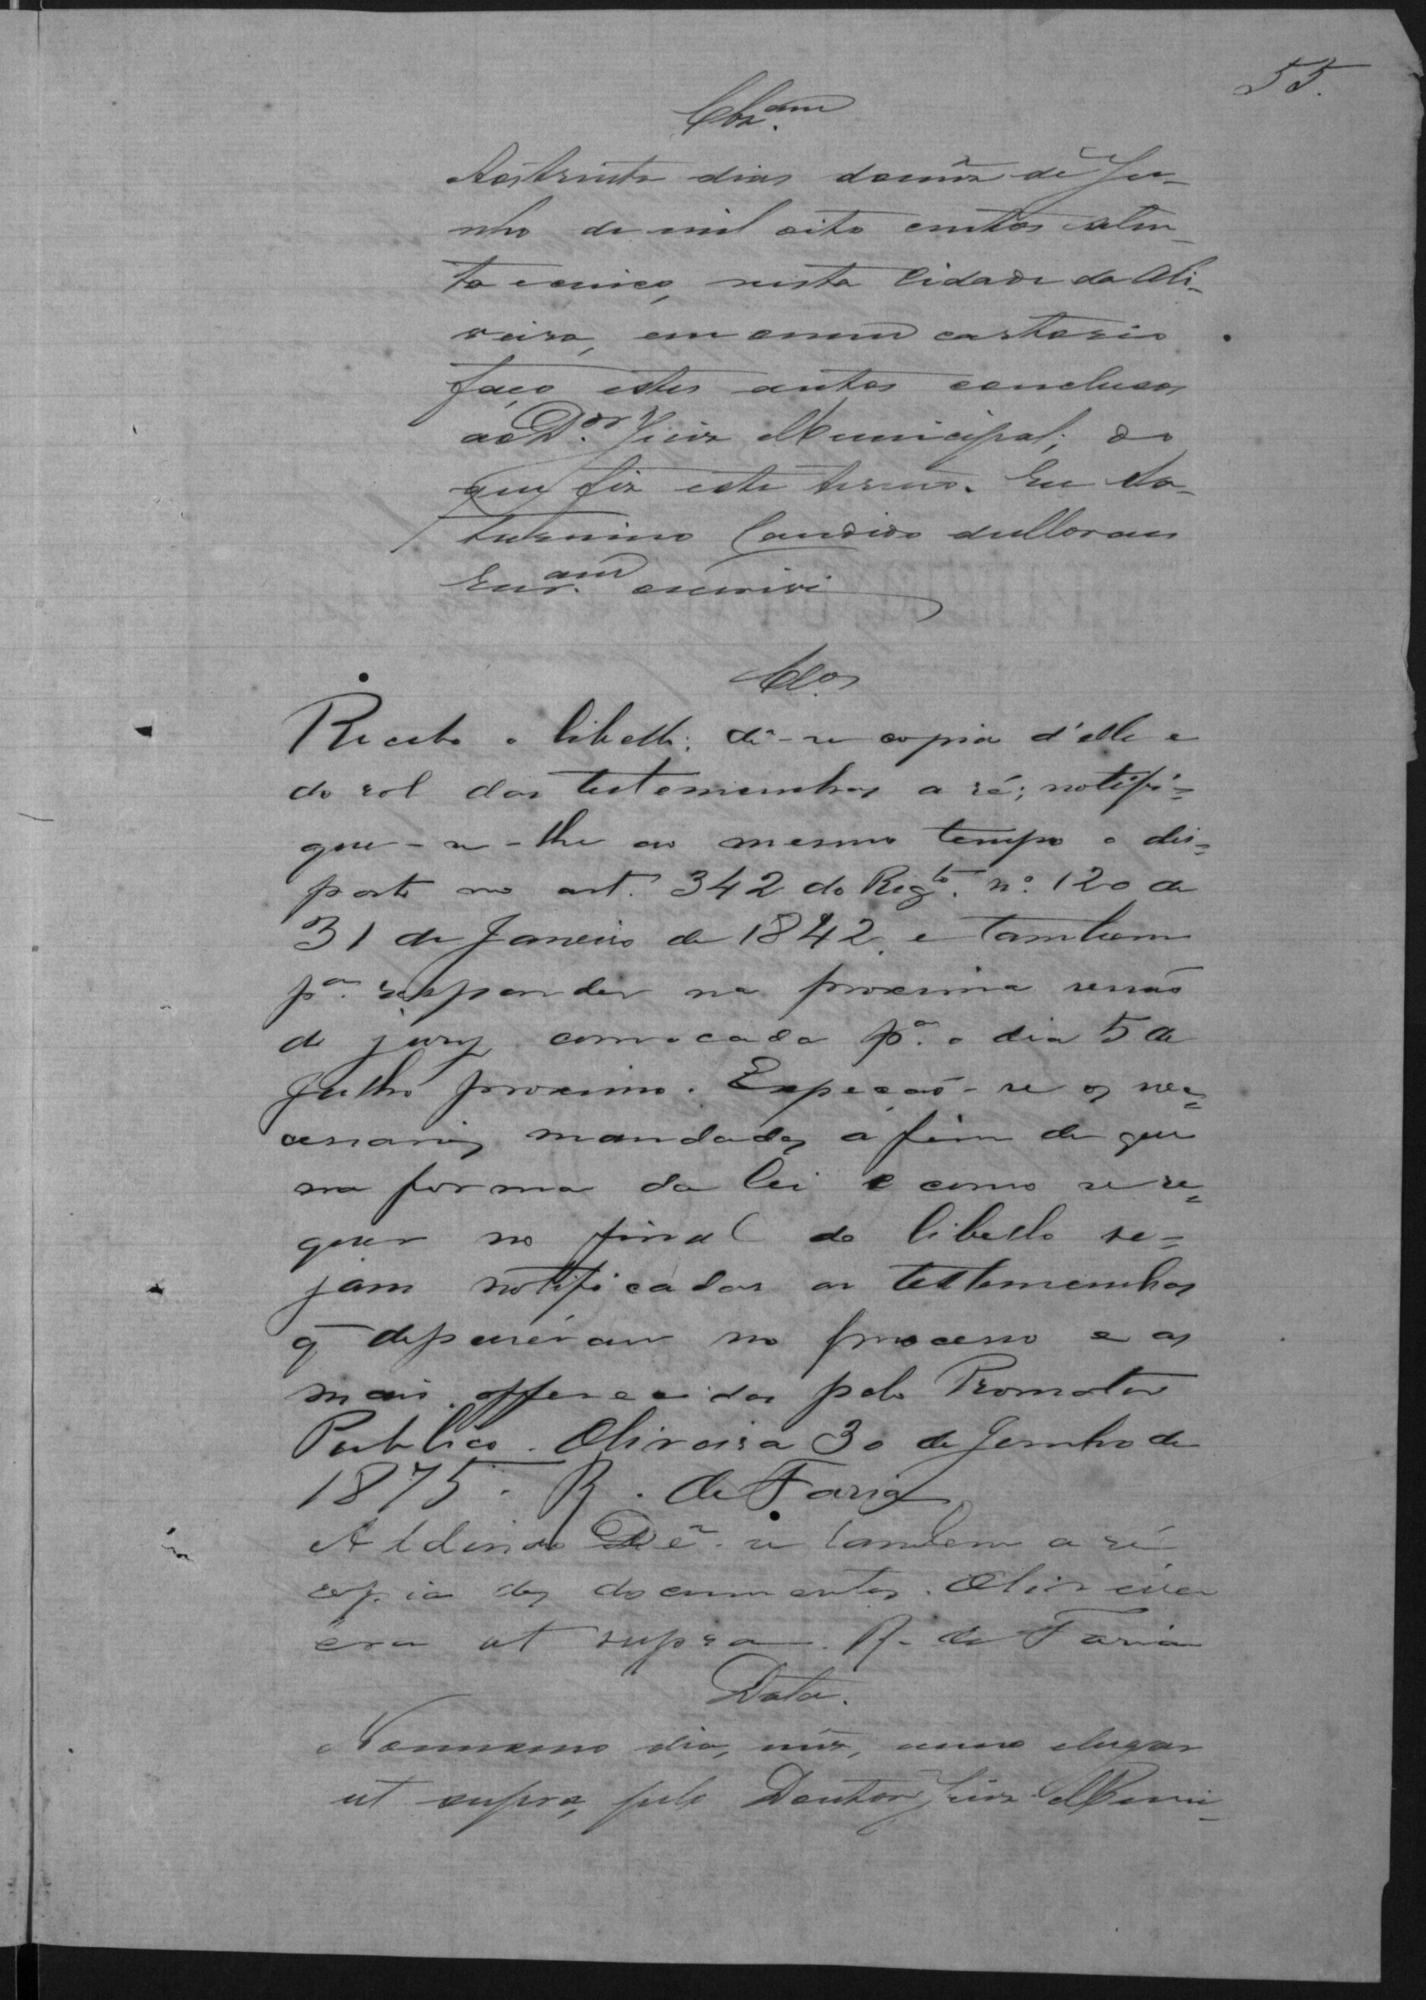 55.
Clz.am
Aos trinta dias domêz de Ju-
nho de mil oito centos seten-
ta e cinco, nesta Cidade da Oli-
veira, em omeu cartorio
faço estes autos conclusos
ao D.or Juiz Municipal; do
que fiz este termo. Eu Sa-
turnino Candido de Moraes
Escr.am escrivi
Clos
Recebo o libello; dê-se copia d'elle e
do rol das testemunhas a ré; notifi=
que-se-lhe ao mesmo tempo o dis=
posto no art. 342 do Reg.to nº 120 de
31 de Janeiro de 1842, e tambem
p.a responder na proxima sessão
do jury convocada p.a o dia 5 de
Julho proximo. Expeção-se os ne=
cessarios mandados a fim de que
na forma da lei e como se re=
quer no final do libello se=
jam notificadas as testemunhas
q̄ depuzéram no processo e as
mais offerecidas pelo Promotor
Publico. Oliveira 30 de Junho de
1875. R. de Faria
Addindo Dê-se tambem a ré
copia dos documentos. Oliveira
era ut supra. R. de Faria
Data.
Nomesmo dia, mêz, anno elugar
ut supra, pelo Doutor Juiz Muni-